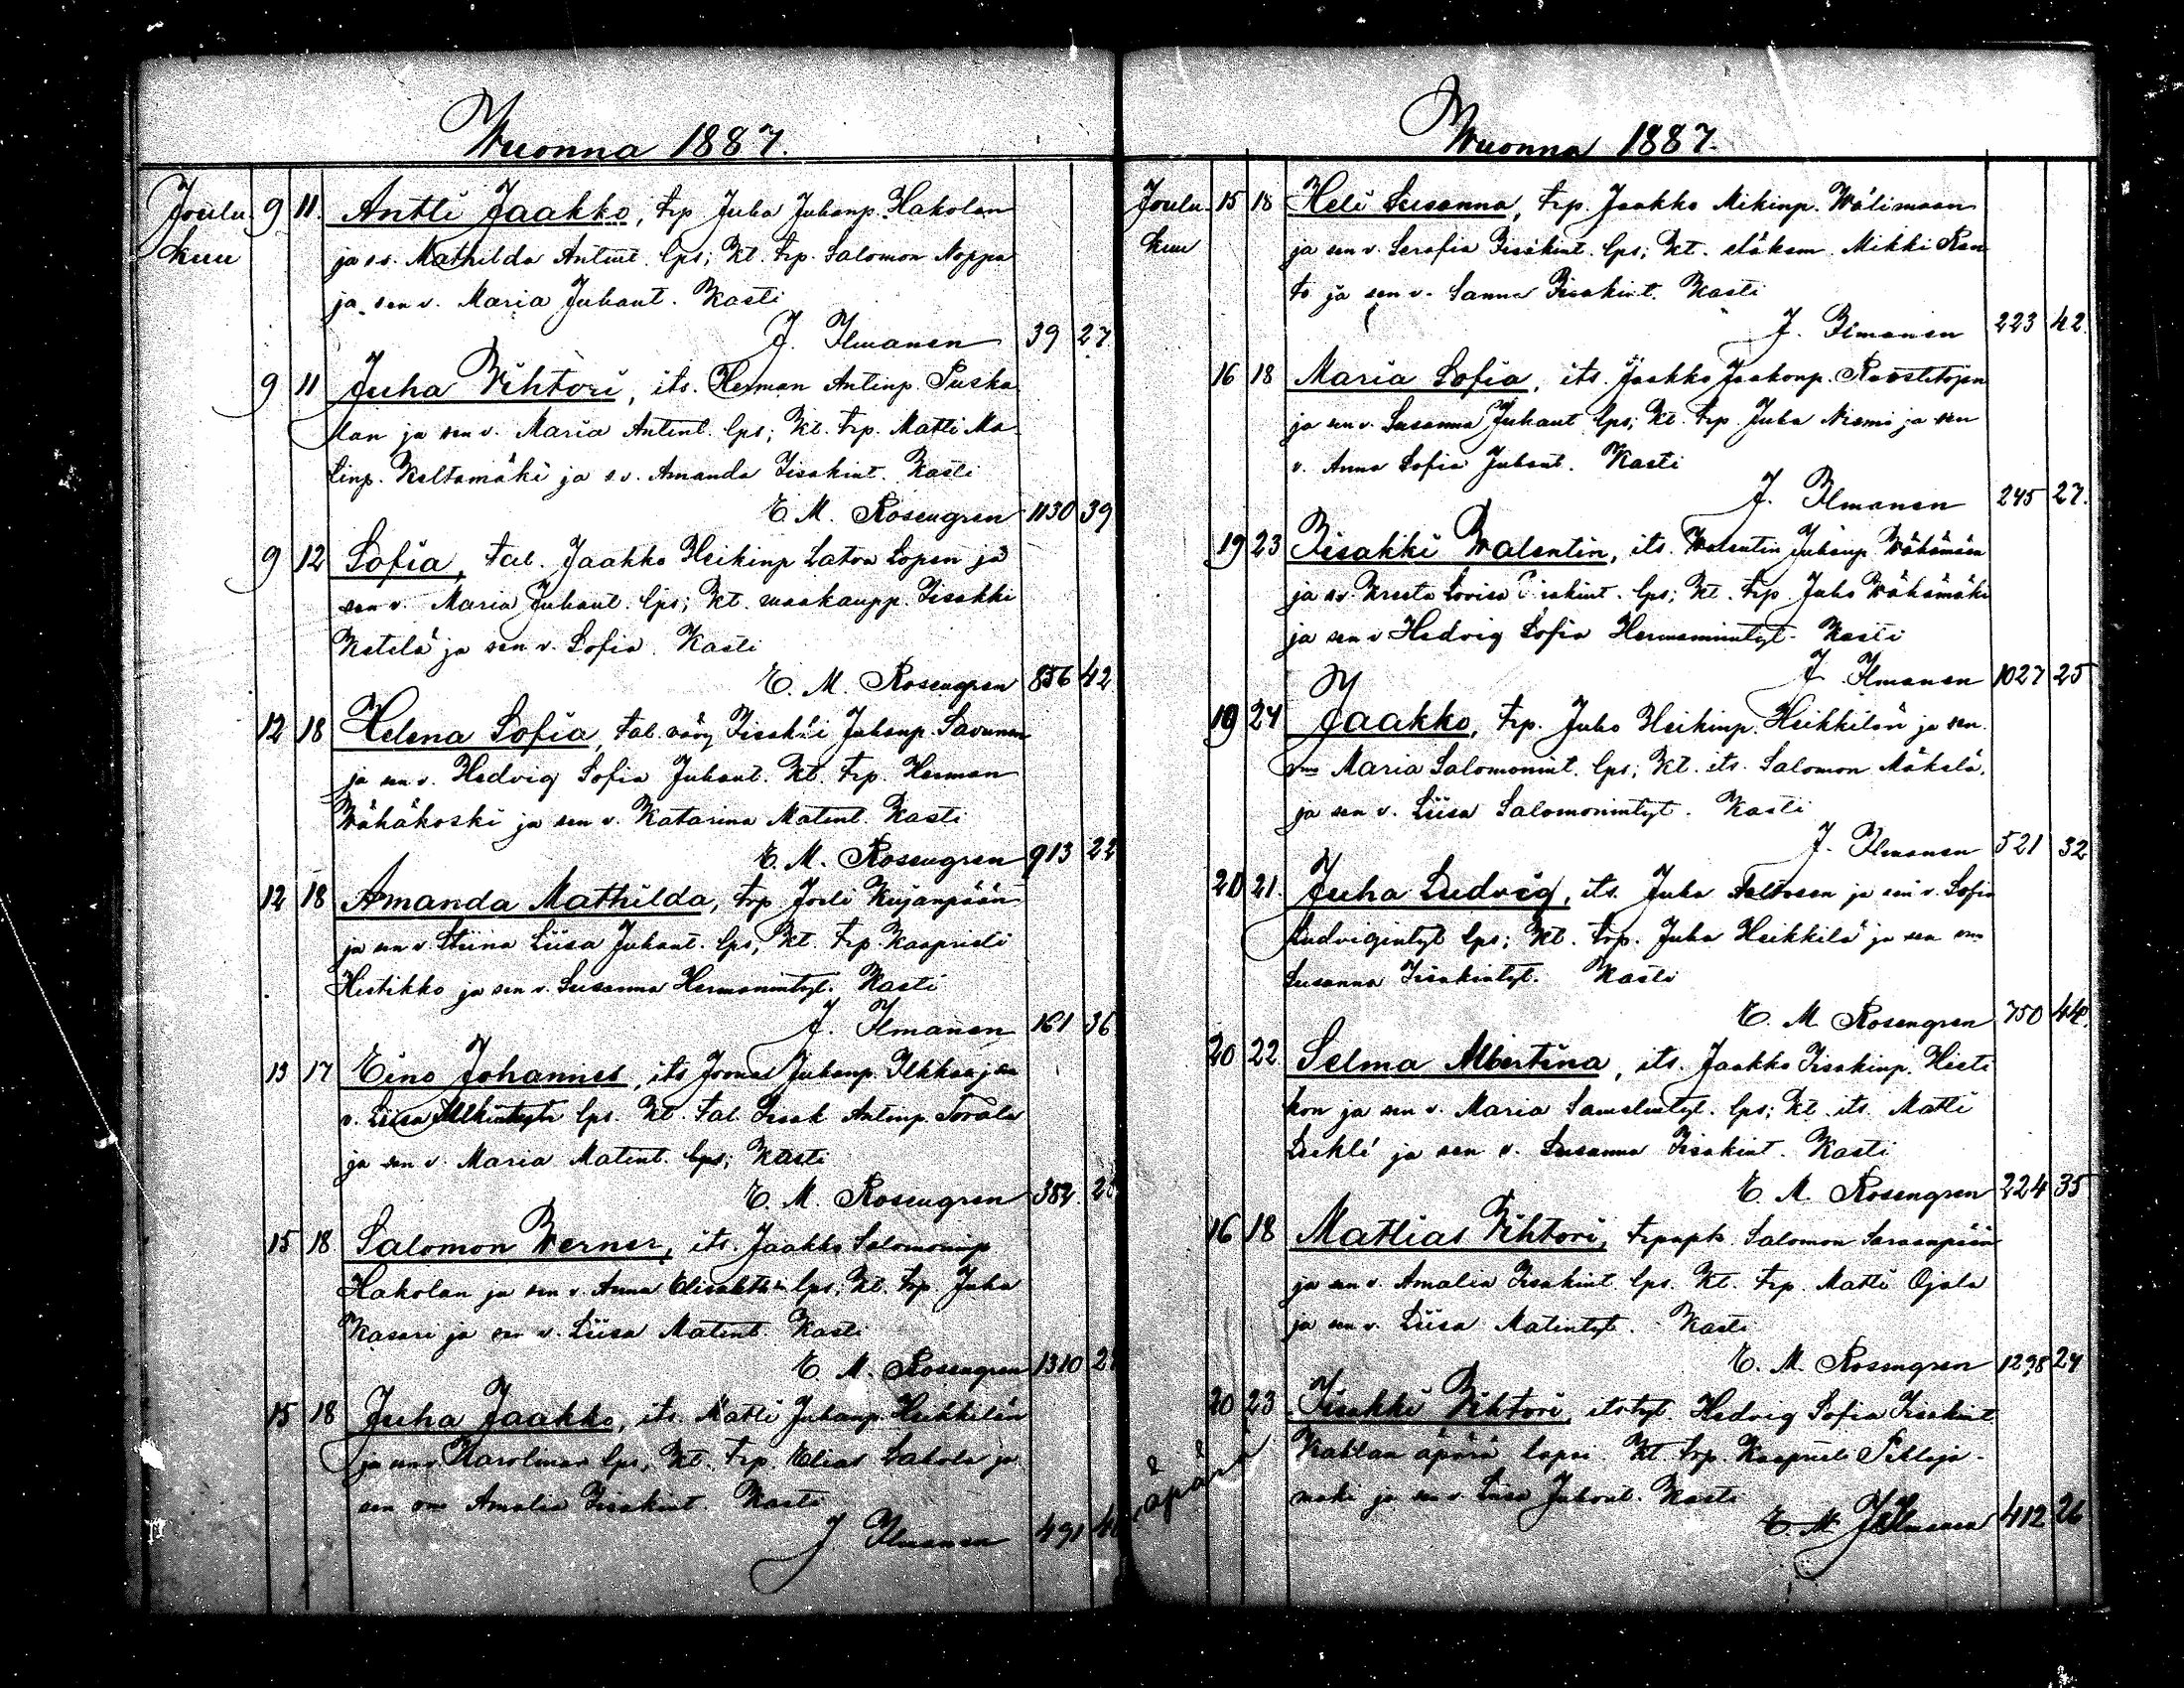 Wuonna 1887.
Joulu 9 11. Antti Jaakko, trp Juha Juhanp. Hakolan
kuu ja s.v. Mathilda Antint. lps; Kt. trp. Salomon Noppa
ja sen v. Maria Juhant. Kasti
J. Ilmanen 39 27
9 11 Juha Wihtori, its. Herman Antinp. Puska
lan ja sen v. Maria Antint. lps; Kt. trp. Matti Ma-
tinp. Keltamäki ja s.v. Amanda Iisakint. Kasti
E. M. Rosengren 1130 39
9 12 Sofia, tal. Jaakko Heikinp Latva Lopen ja
sen v. Maria Juhant. lps; Kt. maakaupp. Iisakki
Ketelä ja sen v. Sofia. Kasti
E. M. Rosengren 856 42
12 18 Helena Sofia, tal. Iisakki Juhanp. Savunen
ja sen v. Hedvig Sofia Juhant. Kt. trp. Herman
Wähäkoski ja sen v. Katarina Matint. Kasti
E. M. Rosengren 913 22
12 18 Amanda Mathilda, trp Joeli Kujanpään
ja sen v. Stiina Liisa Juhant. lps; Kt. trp. Kaaprieli
Hietikko ja sen v. Susanna Hermanintyt. Kasti
J. Ilmanen 161 36
13 17 Eino Johannes, its Joonas Juhanp. Ilkkaa ja sen
v. Liisa lps. Kt. tal. Iisak Antinp. Torala
ja sen v. Maria Matint. lps; Kasti
E. M. Rosengren 382. 28
15 18 Salomon Werner, its. Jaakko Salomoninp
Hakolan ja sen v. Anna Elisabeth lps; Kt. trp. Juha
Kasari ja sen v. Liisa Matint. Kasti
E. M. Rosengren 1310
15 18 Juha Jaakko, its. Matti Juhanp. Heikkilän
ja sen v. Karolinan lps; Kt. trp. Elias Lahola ja
sen vmo Amalia Iisakint. Kasti
J Ilmanen 491
Wuonna 1887.
Joulu 15 18 Heli Susanna, trp. Jaakko Mikinp. Wälimaan
kuu ja sen v. Serafia Iisakint. lps; Kt. Mikki Ran
to ja sen v. Sanna Iisakint. Kasti
J. Ilmanen 223 42.
16 18 Maria Sofia, its. Jaakko Jaakonp.
ja sen v. Susanna Juhant lps; Kt. trp. Juha Niemi ja sen
v. Anna Sofia Juhant. Kasti
J. Ilmanen 245 27.
19 23 Iisakki Walentin, its. Walentin Juhanp. Wähämäen
ja s.v. Kreeta Lovisa Iisakint. lps; Kt. trp. Juho Wähämäki
ja sen v Hedvig Sofia Hermanintyt. Kasti
J Ilmanen 1027 25
19 24 Jaakko, trp. Juho Heikinp. Heikkilän ja sen
vmo Maria Salomonint. lps; Kt. its. Salomon Mäkelä,
ja sen v. Liisa Salomonintyt. Kasti
J. Ilmanen 521 32
20 21. Juha Ludvig, its. Juha ja sen v. Sofia
Ludvigintyt lps; Kt. trp. Juha Heikkilä ja sen vmo
Susanna Iisakintyt. Kasti
E. M. Rosengren 750 44.
20 22 Selma Albertina, its. Jaakko Iisakinp. Hieti
kon ja sen v. Maria Samelintyt. lps; Kt. its. Matti
Leikli ja sen v. Susanna Iisakint. Kasti
E. M. Rosengren 224 35
16 18 Mattias Wihtori, Salomon Sarvenpään
ja sen v. Amalia Iisakint lps. Kt. trp. Matti Ojala
ja sen v. Liisa Matintyt. Kasti
E. M. Rosengren 1298 24
20 23 Iisakki Wihtori, itstyt. Hedvig Sofia Iisakint
äpärä Kallaan äpärä lapsi. Kt. trp. Kaaprieli Pihlaja-
mäki ja sen v. Liisa Juhant. Kasti
E. M. J. Ilmanen 412 26